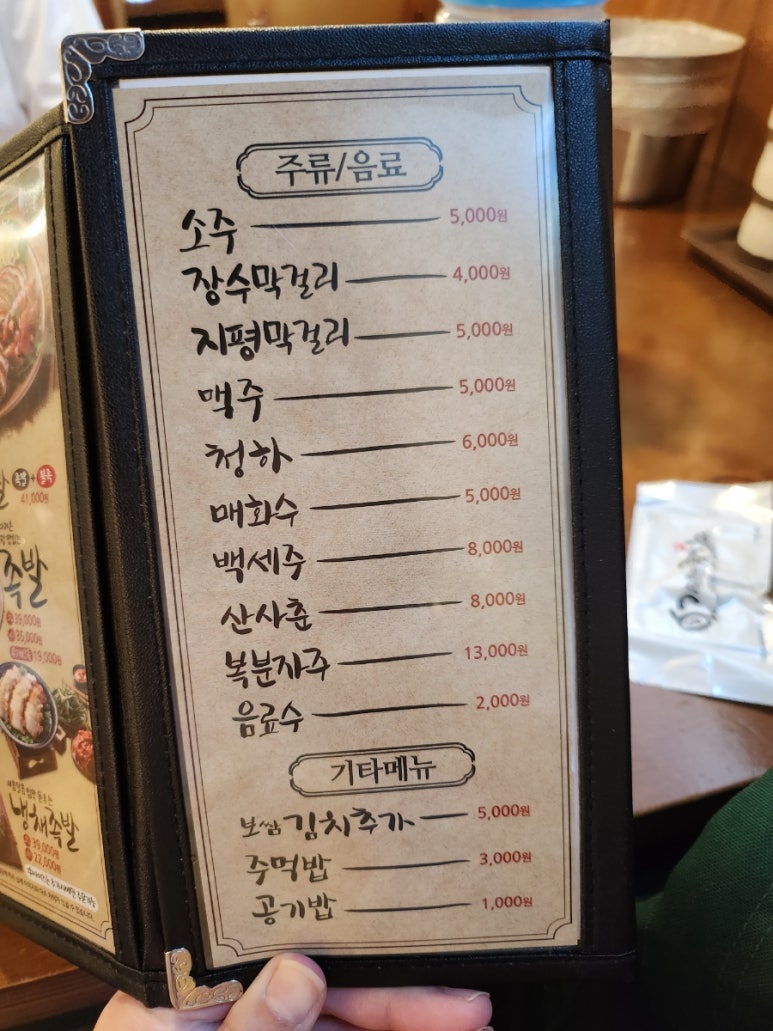 주류/음료
소주 5,000원
장수막걸리 4,000원
지평막걸리 5,000원
맥주 5,000원
청하 6,000원
매화수 5,000원
백세주 8,000원
산사춘 8,000원
복분자주 13,000원
음료수 2,000원
기타메뉴
보쌈김치추가 5,000원
주먹밥 3,000원
공기밥 1,000원
41,000원
족발
39,000원
35,000원
19,000원
냉채족발
39,000원
22,000원